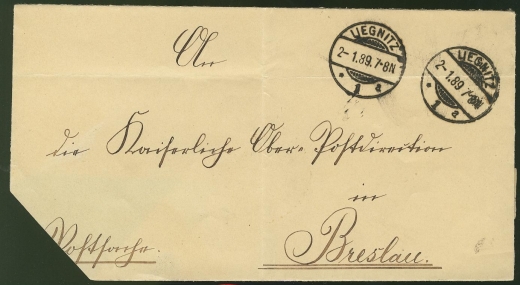 An
LIEGNITZ
2-1.89.7-8N
* 1 a
LIEGNITZ
2-1.89.7-8N
* 1 a
die Kaiserliche Ober-Postdirection
in
Breslau.
Postsache.